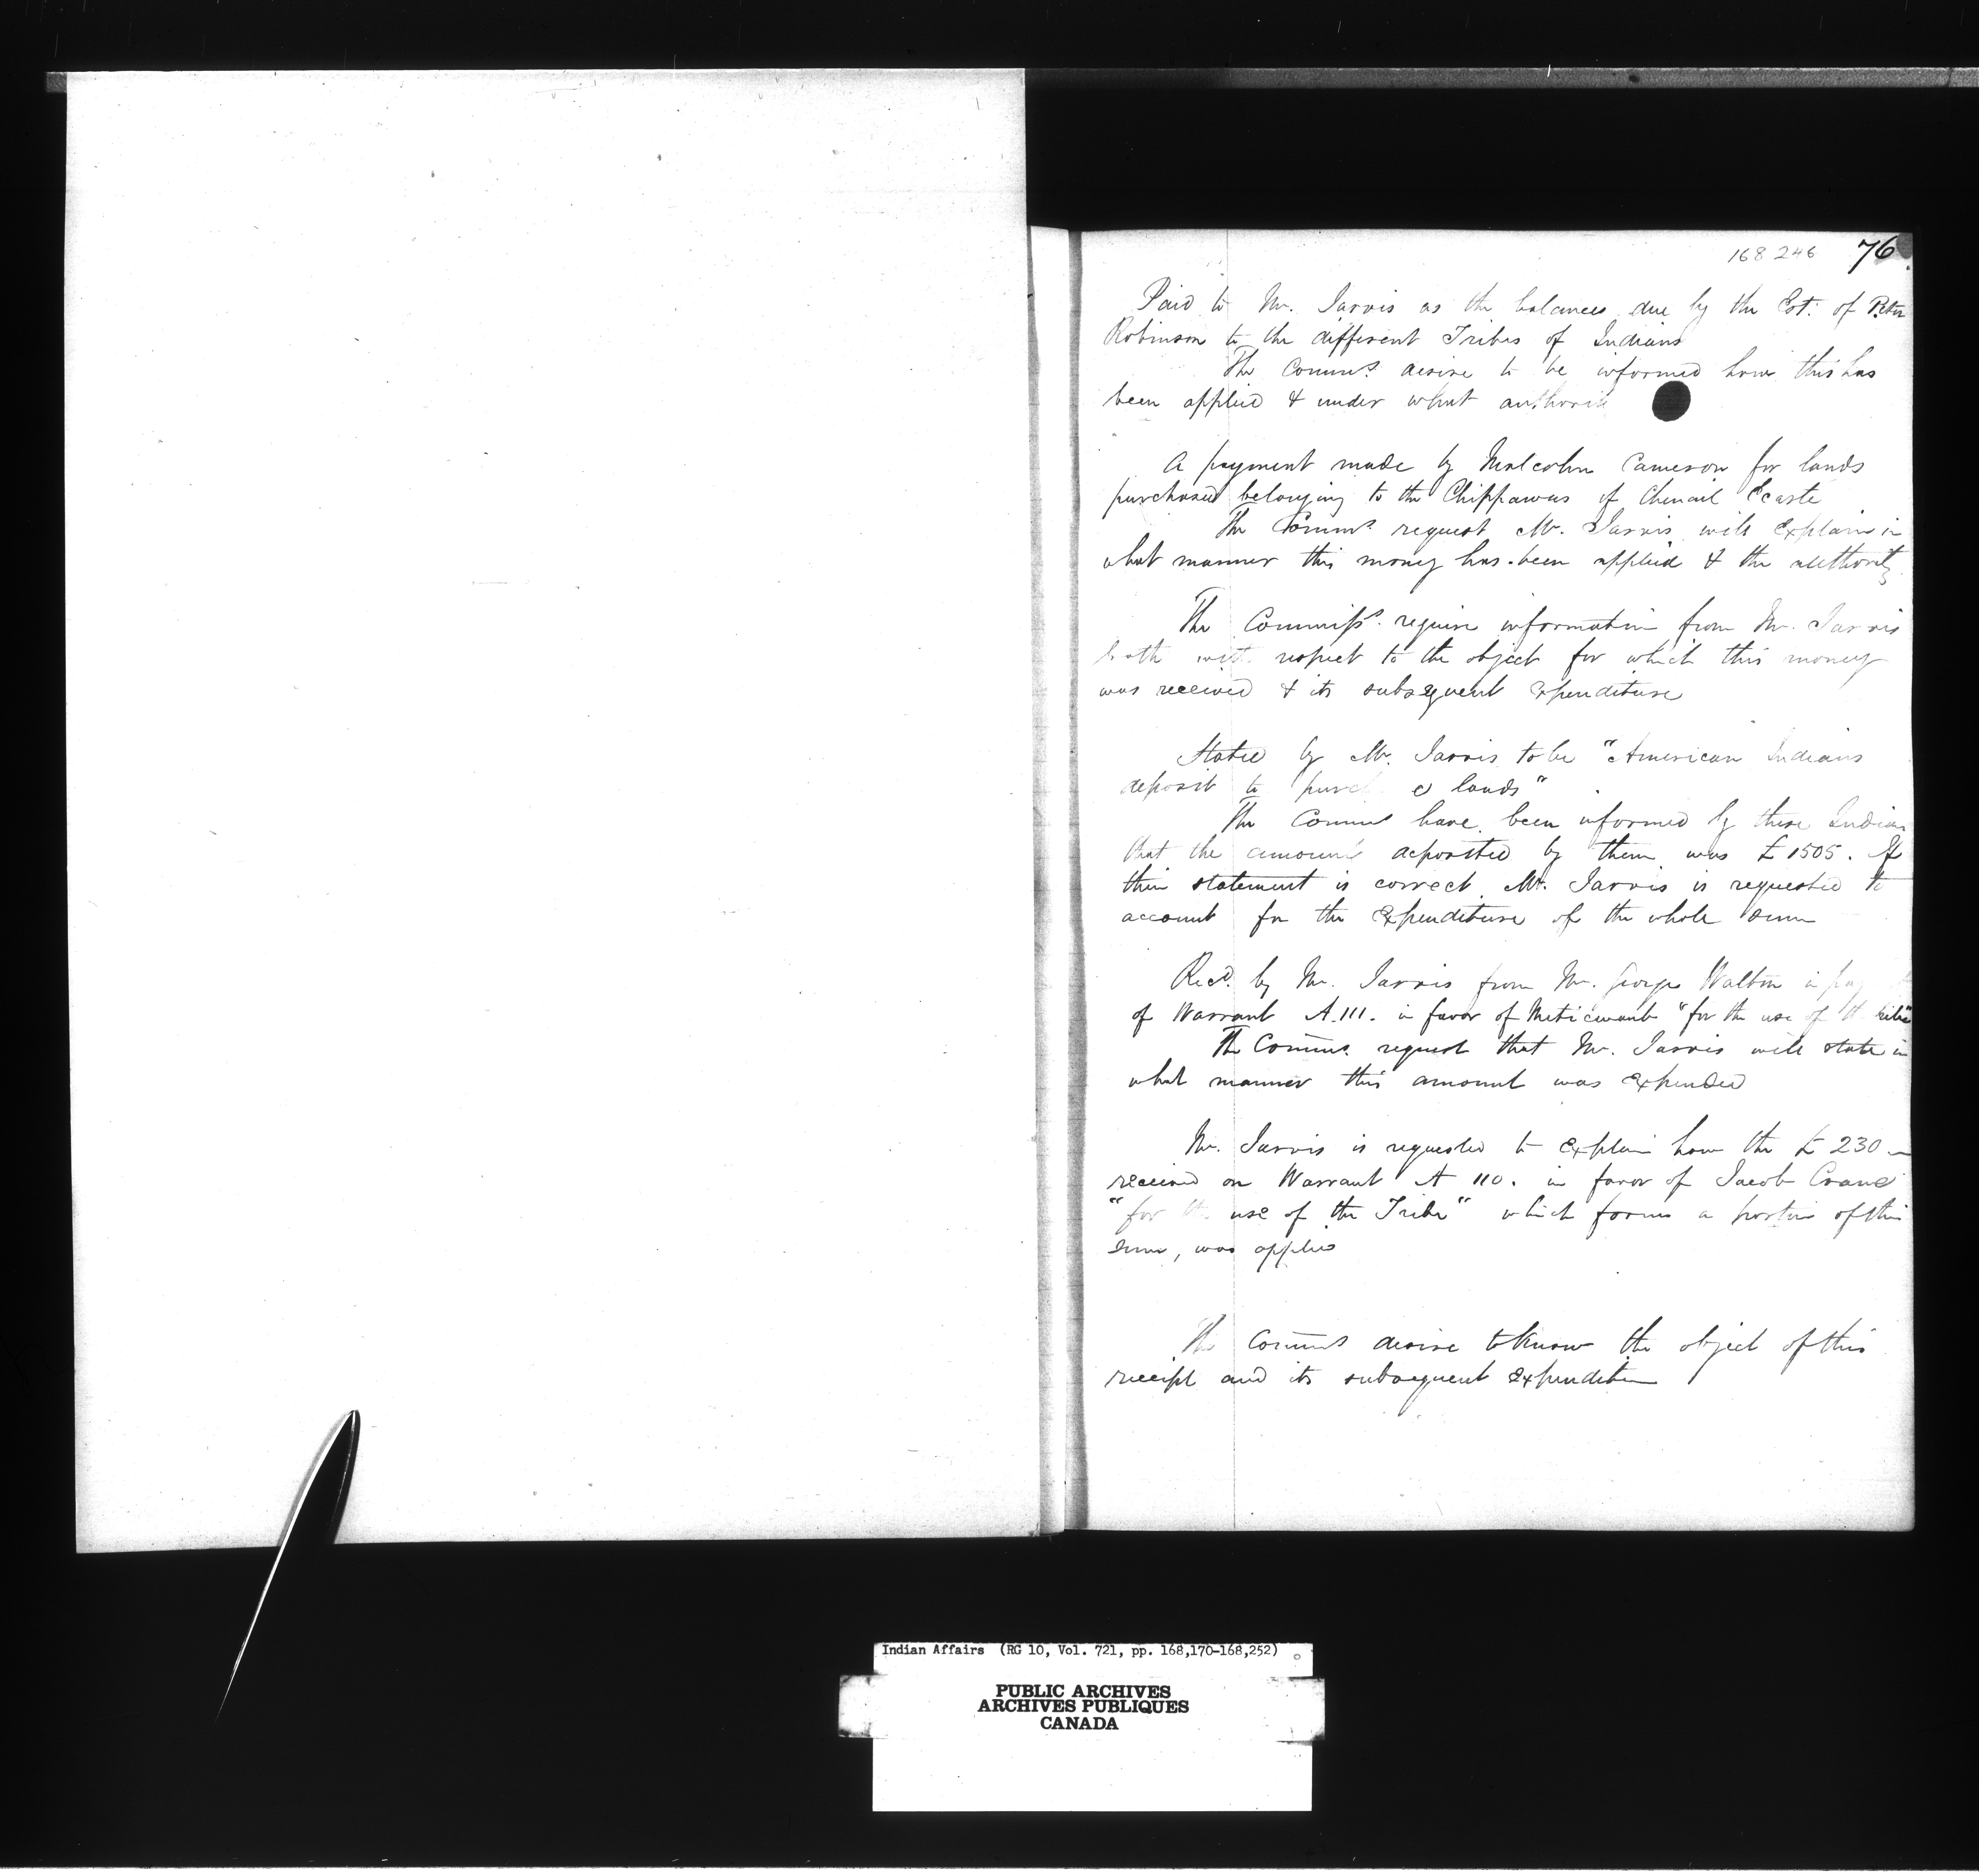 168246 76
Paid to Mr. Jarvis as the balances due by the Est: of Peter
Robinson to the different Tribes of Indians
The Comms. desire to be informed how this has
been applied & under what authori
A payment made by Malcolm Cameron for lands
purchased belonging to the Chippawas of Chenail Ecarte
The Comms. request Mr. Jarvis will explain in
what manner this money has been applied & the authority
The Commissrs. require information from Mr. Jarvis
both with respect to the object for which this money
was received & its subsequent expenditure
Stated by Mr. Jarvis to be "American Indians
deposit to purc e lands"
The Comms have been informed by these Indian
that the amount deposited by them was £1505. If
this statement is correct Mr. Jarvis is requested to
account for the expenditure of the whole sum
Recd. by Mr. Jarvis from Mr. George Walton in pay
of Warrant A.111. in favor of "for the use of th tribe"
The Comms. request that Mr. Jarvis will state in
what manner this amount was expended
Mr. Jarvis is requested to explain how the £230
received on Warrant A 110. in favor of Jacob Crane
"for the use of the Tribe" which forms a portion of this
sum, was applied
The Comms desire to know the object of this
receipt and its subsequent expenditure
Indian Affairs (RG 10, Vol. 721, pp. 168,170-168,252)
PUBLIC ARCHIVES
ARCHIVES PUBLIQUES
CANADA